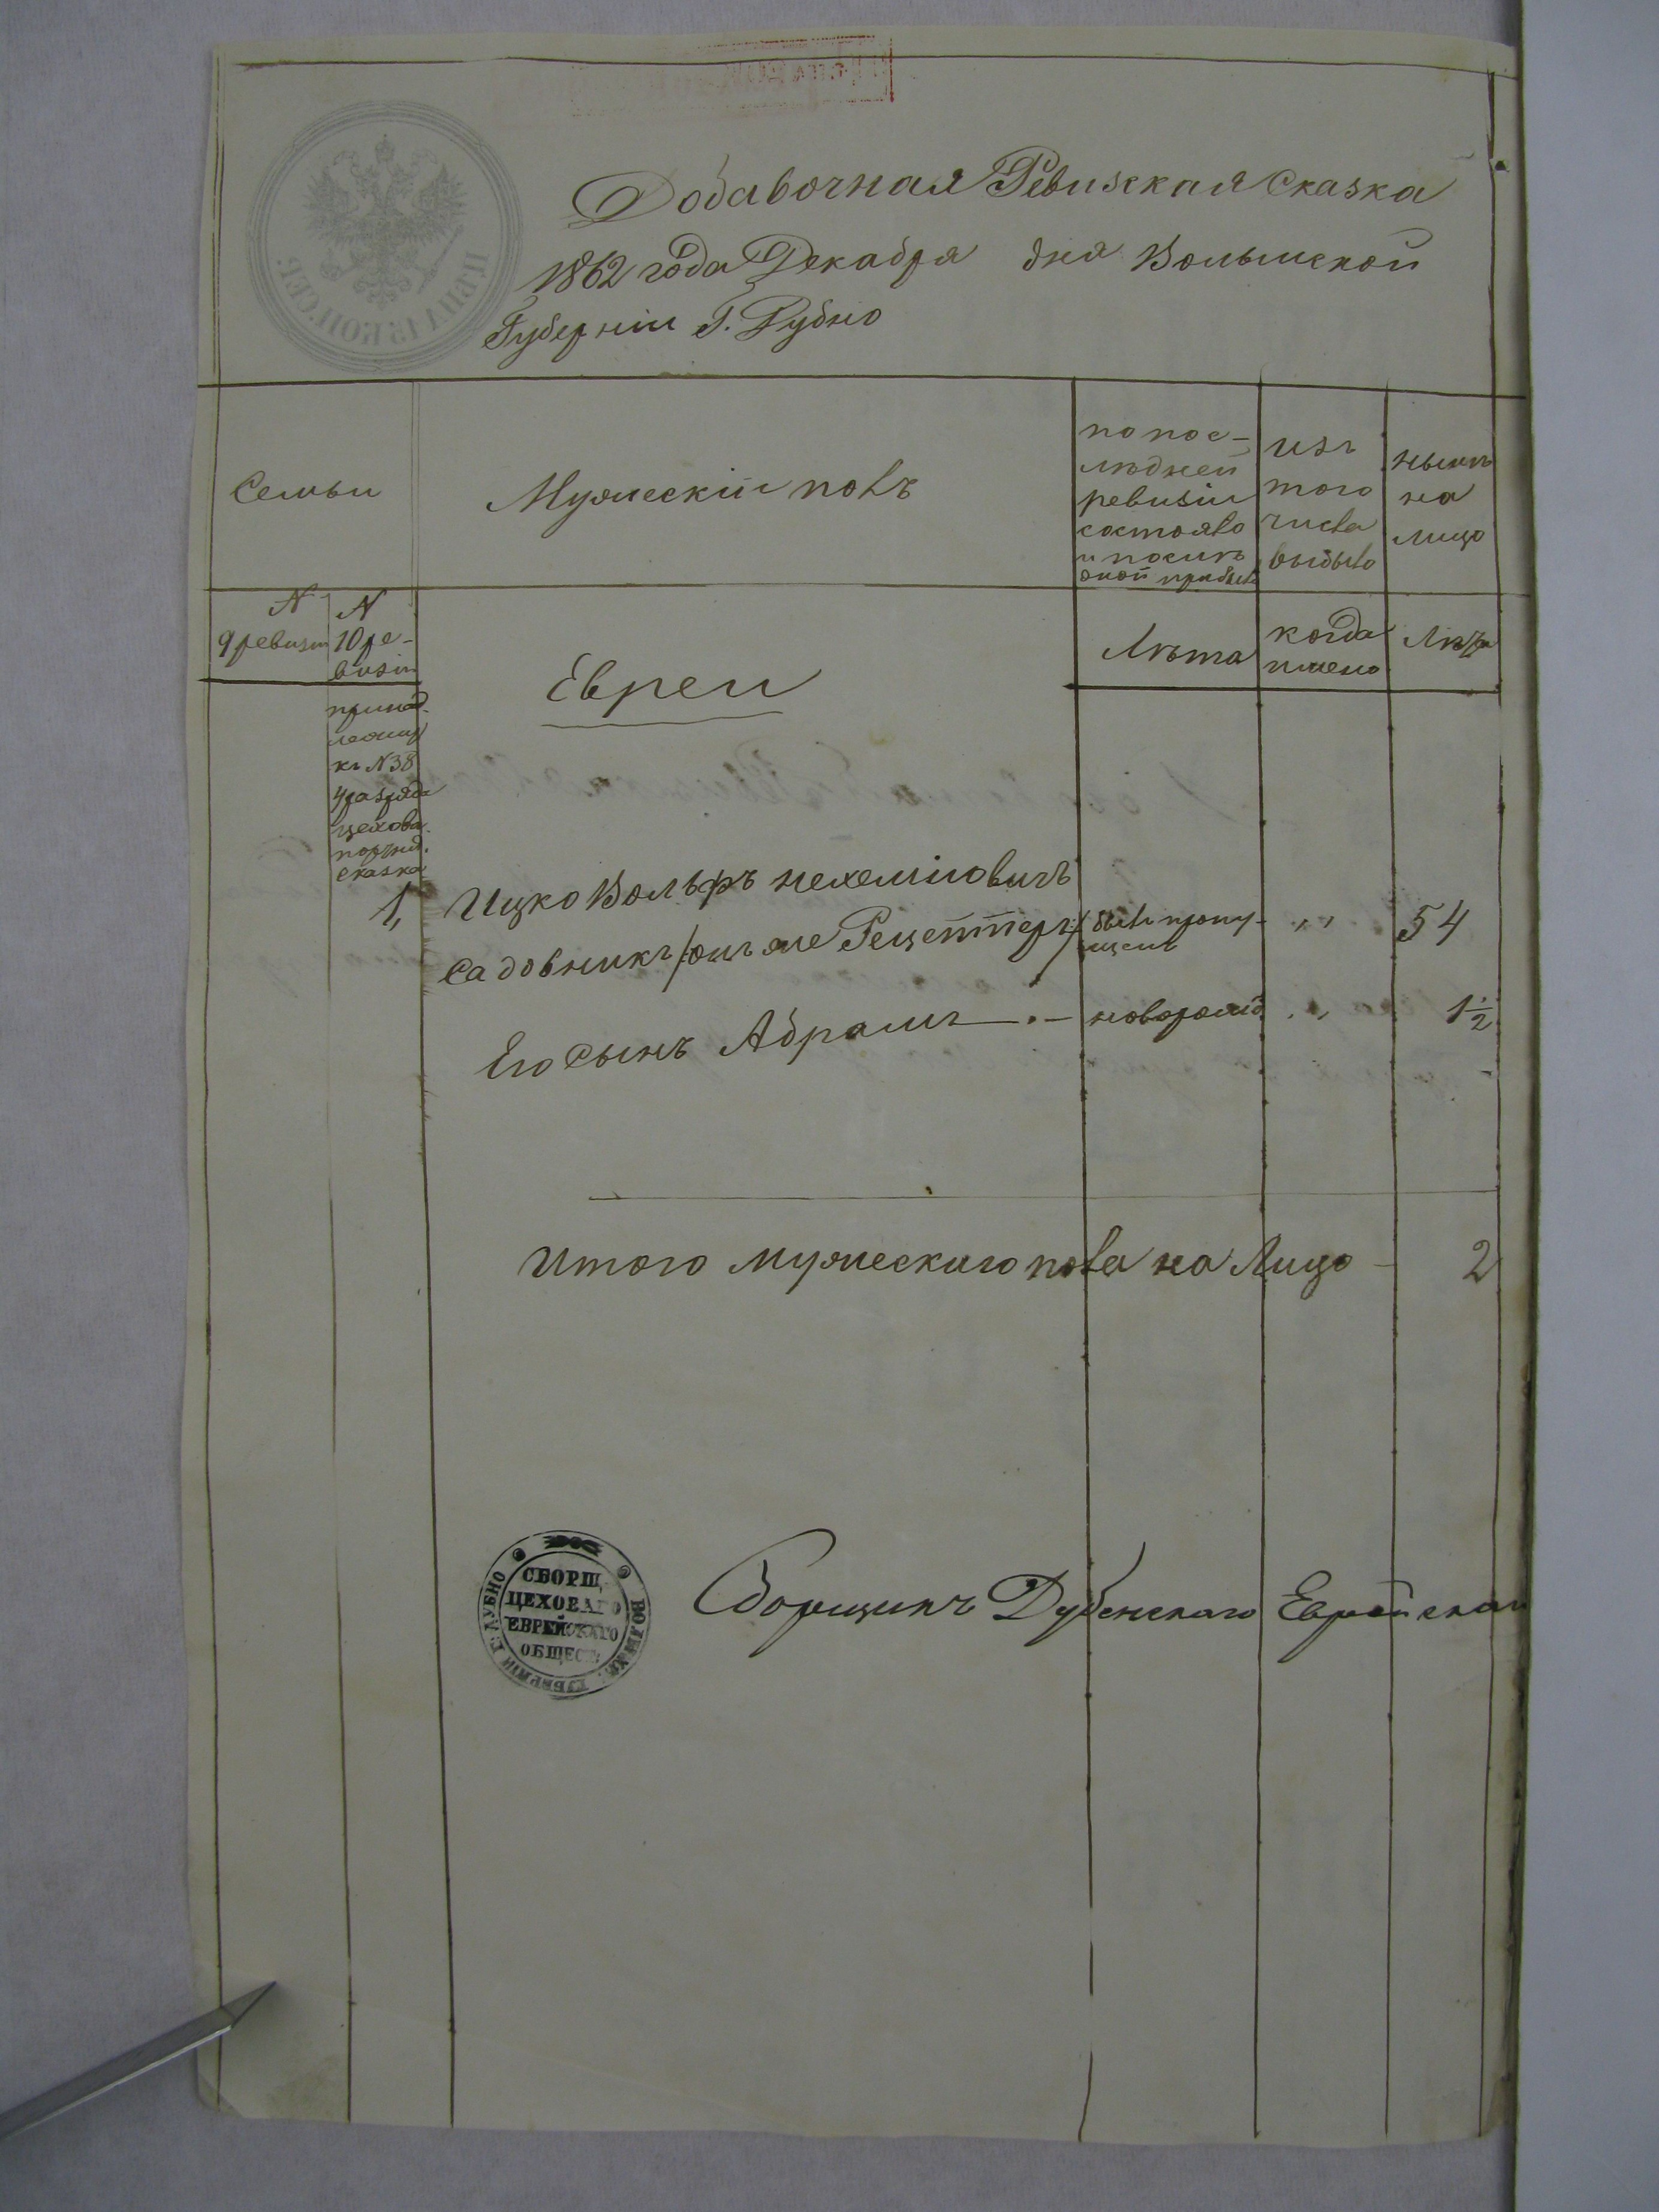 Добавочная Ревизская Сказка
1862 года Декабря дня Волынской
Губерніи Г. Дубно
Семьи
Мужескій полъ
по пос-
лѣдней
ревизіи
состояло
и послѣ
оной прибыло
изъ
того
числа
выбыло
нынѣ
на
лицо
N
9 ревизіи
N
10 ре-
визіи
Евреи
Лѣта
когда
имено
Лѣта
принад.
лежит
къ N 38
4 разряда
цехова.
сказка
1, Ицко Вольфъ Нехеміовичъ
Садовникъ /онъ же Рецептеръ/ былъ пропу-
щенъ " 54
Его Сынъ Абрамъ — новорожд. " 1 1/2
Итого мужескаго пола на Лицо 2
СБОРЩ.
ЦЕХОВАГО
ЕВРЕЙСКАГО
ОБЩЕС.
ВОЛЫНСК. ГУБЕРНІИ Г. ДУБНО
Сборщикъ Дубенскаго Еврейскаго